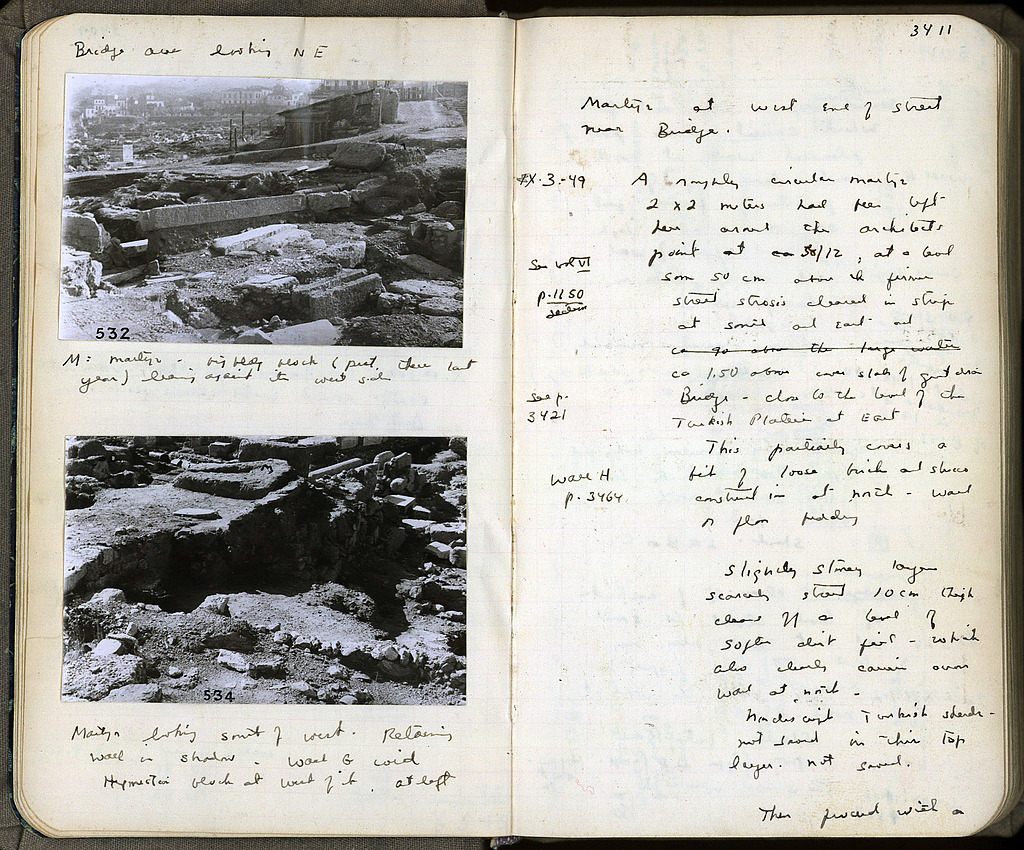 Bridge area looking NE
532
M: martyr - big bldg block (
year) leaning against its west side
534
Martyr looking south of west. Retaining
wall in shadow - wall G
Hymettian block at west of it, at left
3411
Martyr at west end of street
near Bridge.
IX-3-49 A roughly circular martyr
2 x 2 meters had been left
here around the architects
See vol VI point at ca 38/12, at a level
p.1150 some 50 cm above the
section street strosis cleared in strip
at south and east and
ca 90 above the large
ca 1.50 above cover slab of great drain
see p. Bridge - close to the level of the
3421 Turkish at East
This partially covers a
Wall H bit of loose brick and stucco
p. 3464. construction at north - wall
or floor
Slightly stoney layer
scarcely 10 cm
cleared off a level of
softer dirt fill - which
also clearly over
wall at north -
Turkish sherds -
not saved in this top
layer. not saved.
Then proceed with a